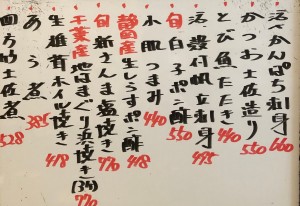 活〆かんぱち刺身 660
かつお土佐造り
とび魚たたき 440
活殻付帆立刺身 495
旬 白子ポン酢 550
小肌つまみ 440
静岡産 生しらすポン酢 418
旬 新さんま塩焼き 770
千葉産 地はまぐり浜焼き(3ケ) 770
生雄茸ホイル焼き 418
あら煮 385
四方竹土佐煮 528